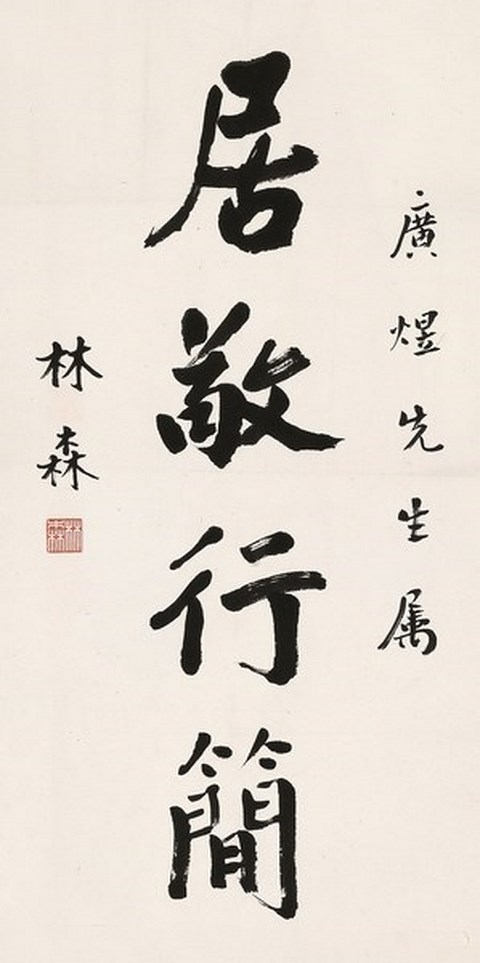 廣煜先生属
居敬行簡
林森
林森